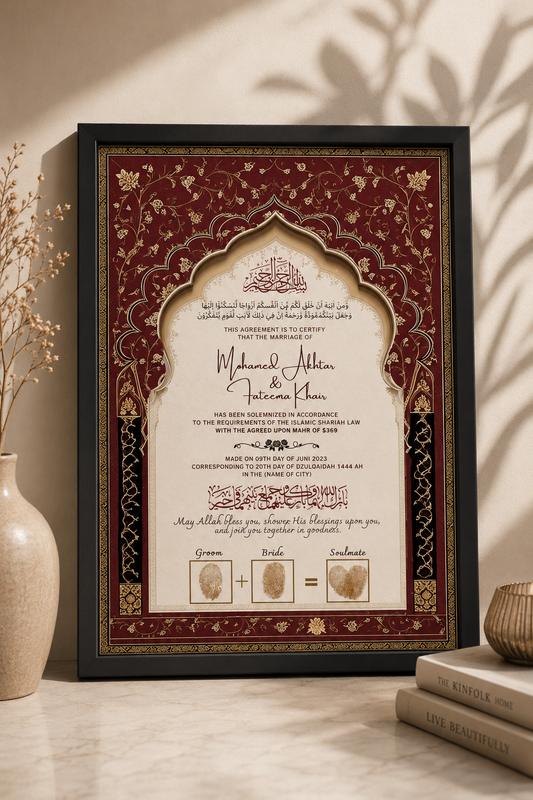 بسم الله الرحمن الرحيم
وَمِنْ آيَتِهِ أَنْ خَلَقَ لَكُم مِّنْ أَنْفُسِكُمْ أَزْوَاجًا لِّتَسْكُنُوا إِلَيْهَا
وَجَعَلَ بَيْنَكُم مَّوَدَّةً وَرَحْمَةً إِنَّ فِي ذَلِكَ لَآيَتٍ لِّقَوْمٍ يَتَفَكَّرُونَ
THIS AGREEMENT IS TO CERTIFY
THAT THE MARRIAGE OF
Mohamed Akhtar
&
Fateema Khair
HAS BEEN SOLEMNIZED IN ACCORDANCE
TO THE REQUIREMENTS OF THE ISLAMIC SHARIAH LAW
WITH THE AGREED UPON MAHR OF $369
MADE ON 09TH DAY OF JUNI 2023
CORRESPONDING TO 20TH DAY OF DZULQAIDAH 1444 AH
IN THE (NAME OF CITY)
May Allah bless you, shower His blessings upon you,
and join you together in goodness.
Groom Bride Soulmate
+ =
THE KINFOLK HOME
LIVE BEAUTIFULLY